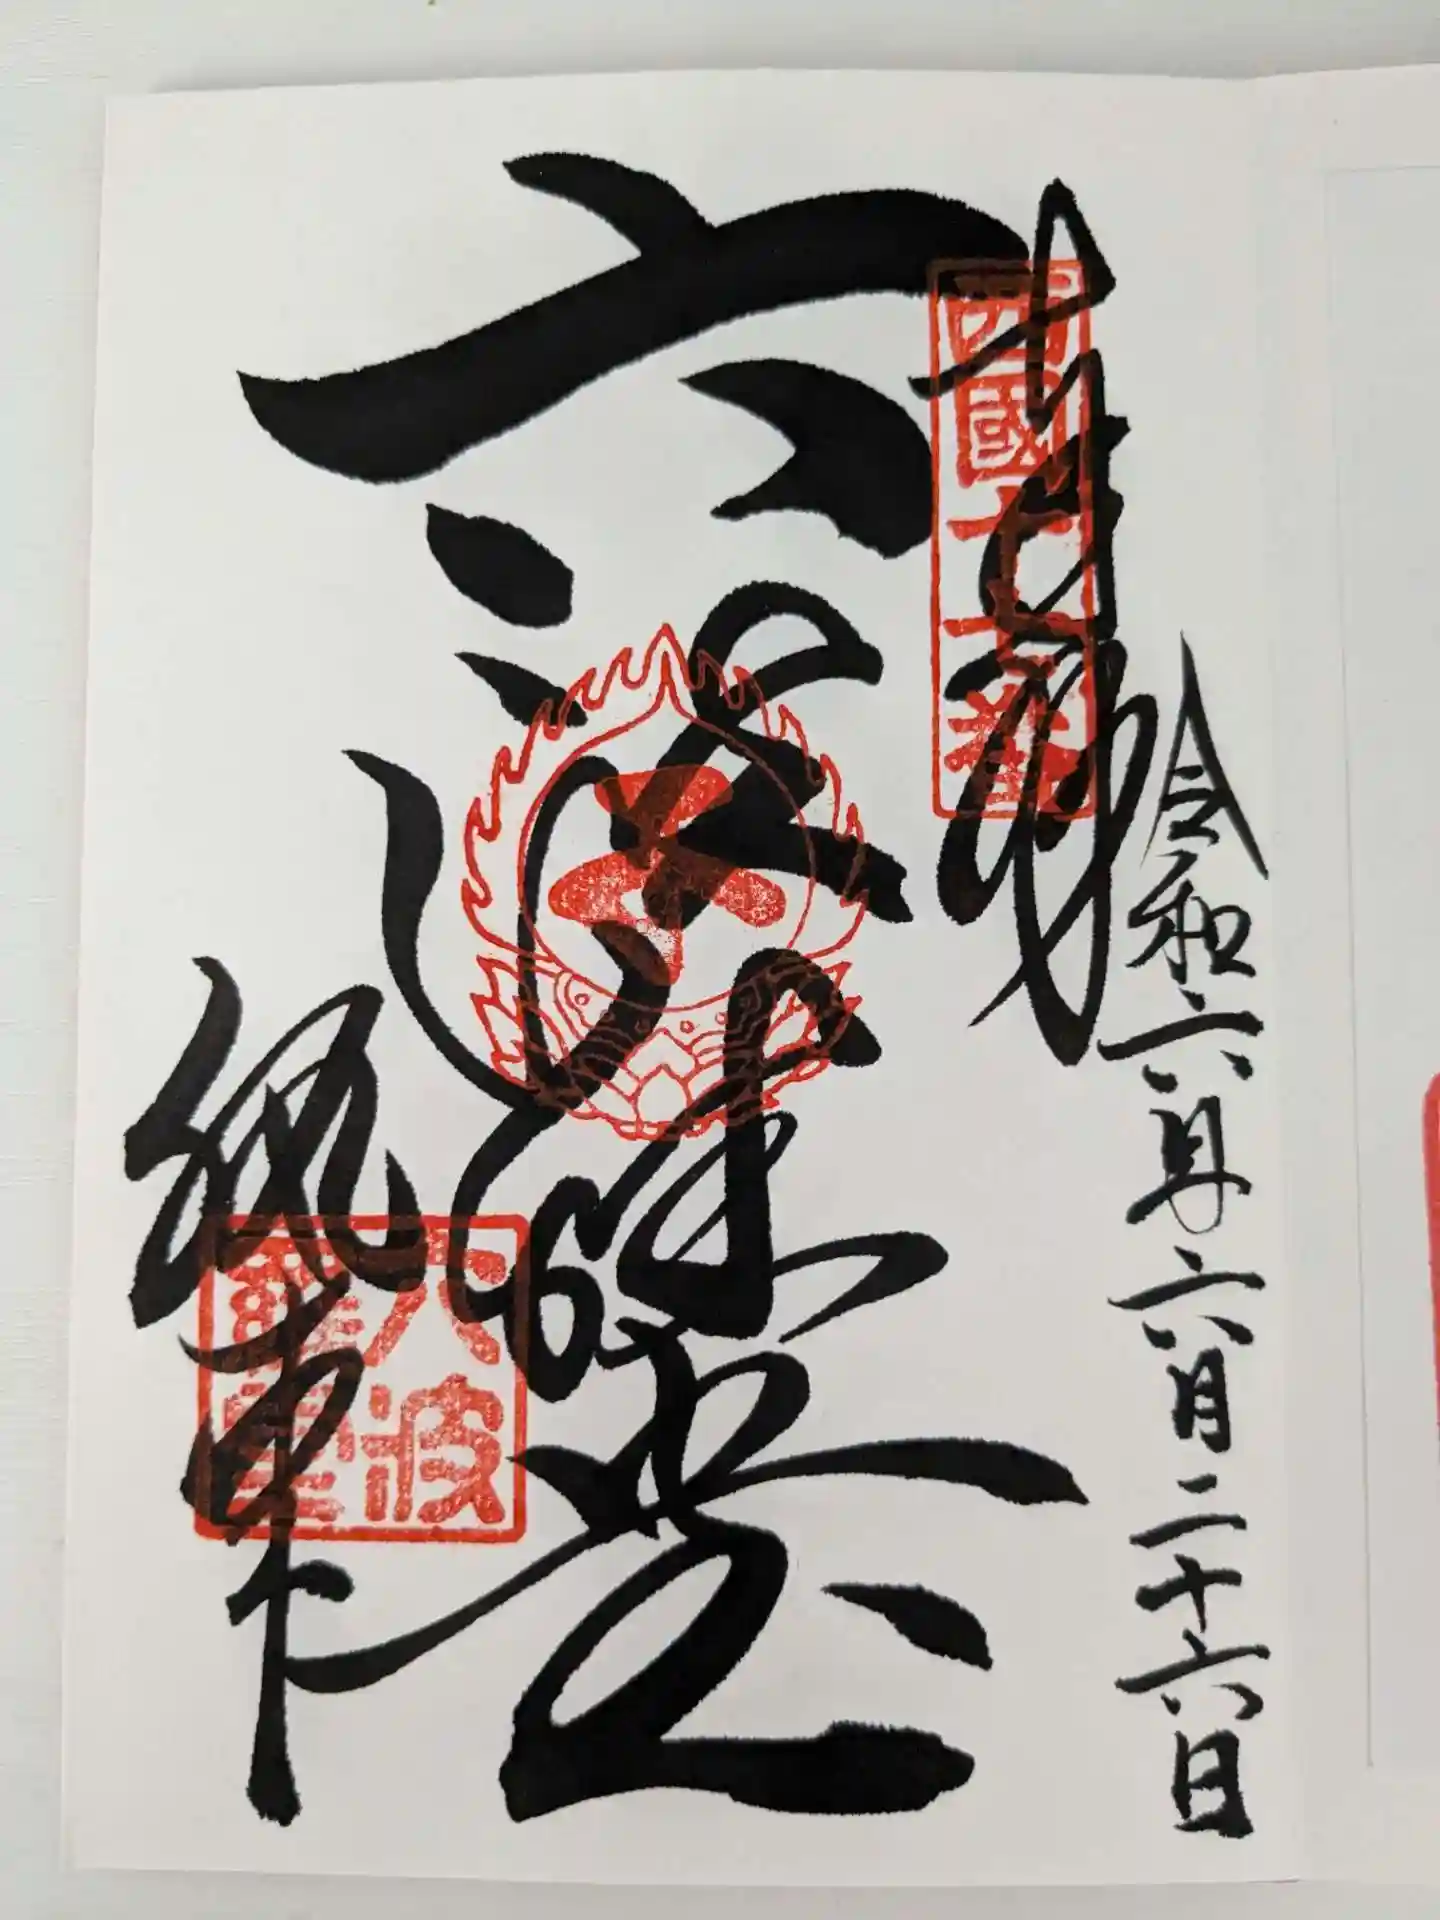 令和六年六月二十六日
奉拝
西國十七番
六波羅堂
六波